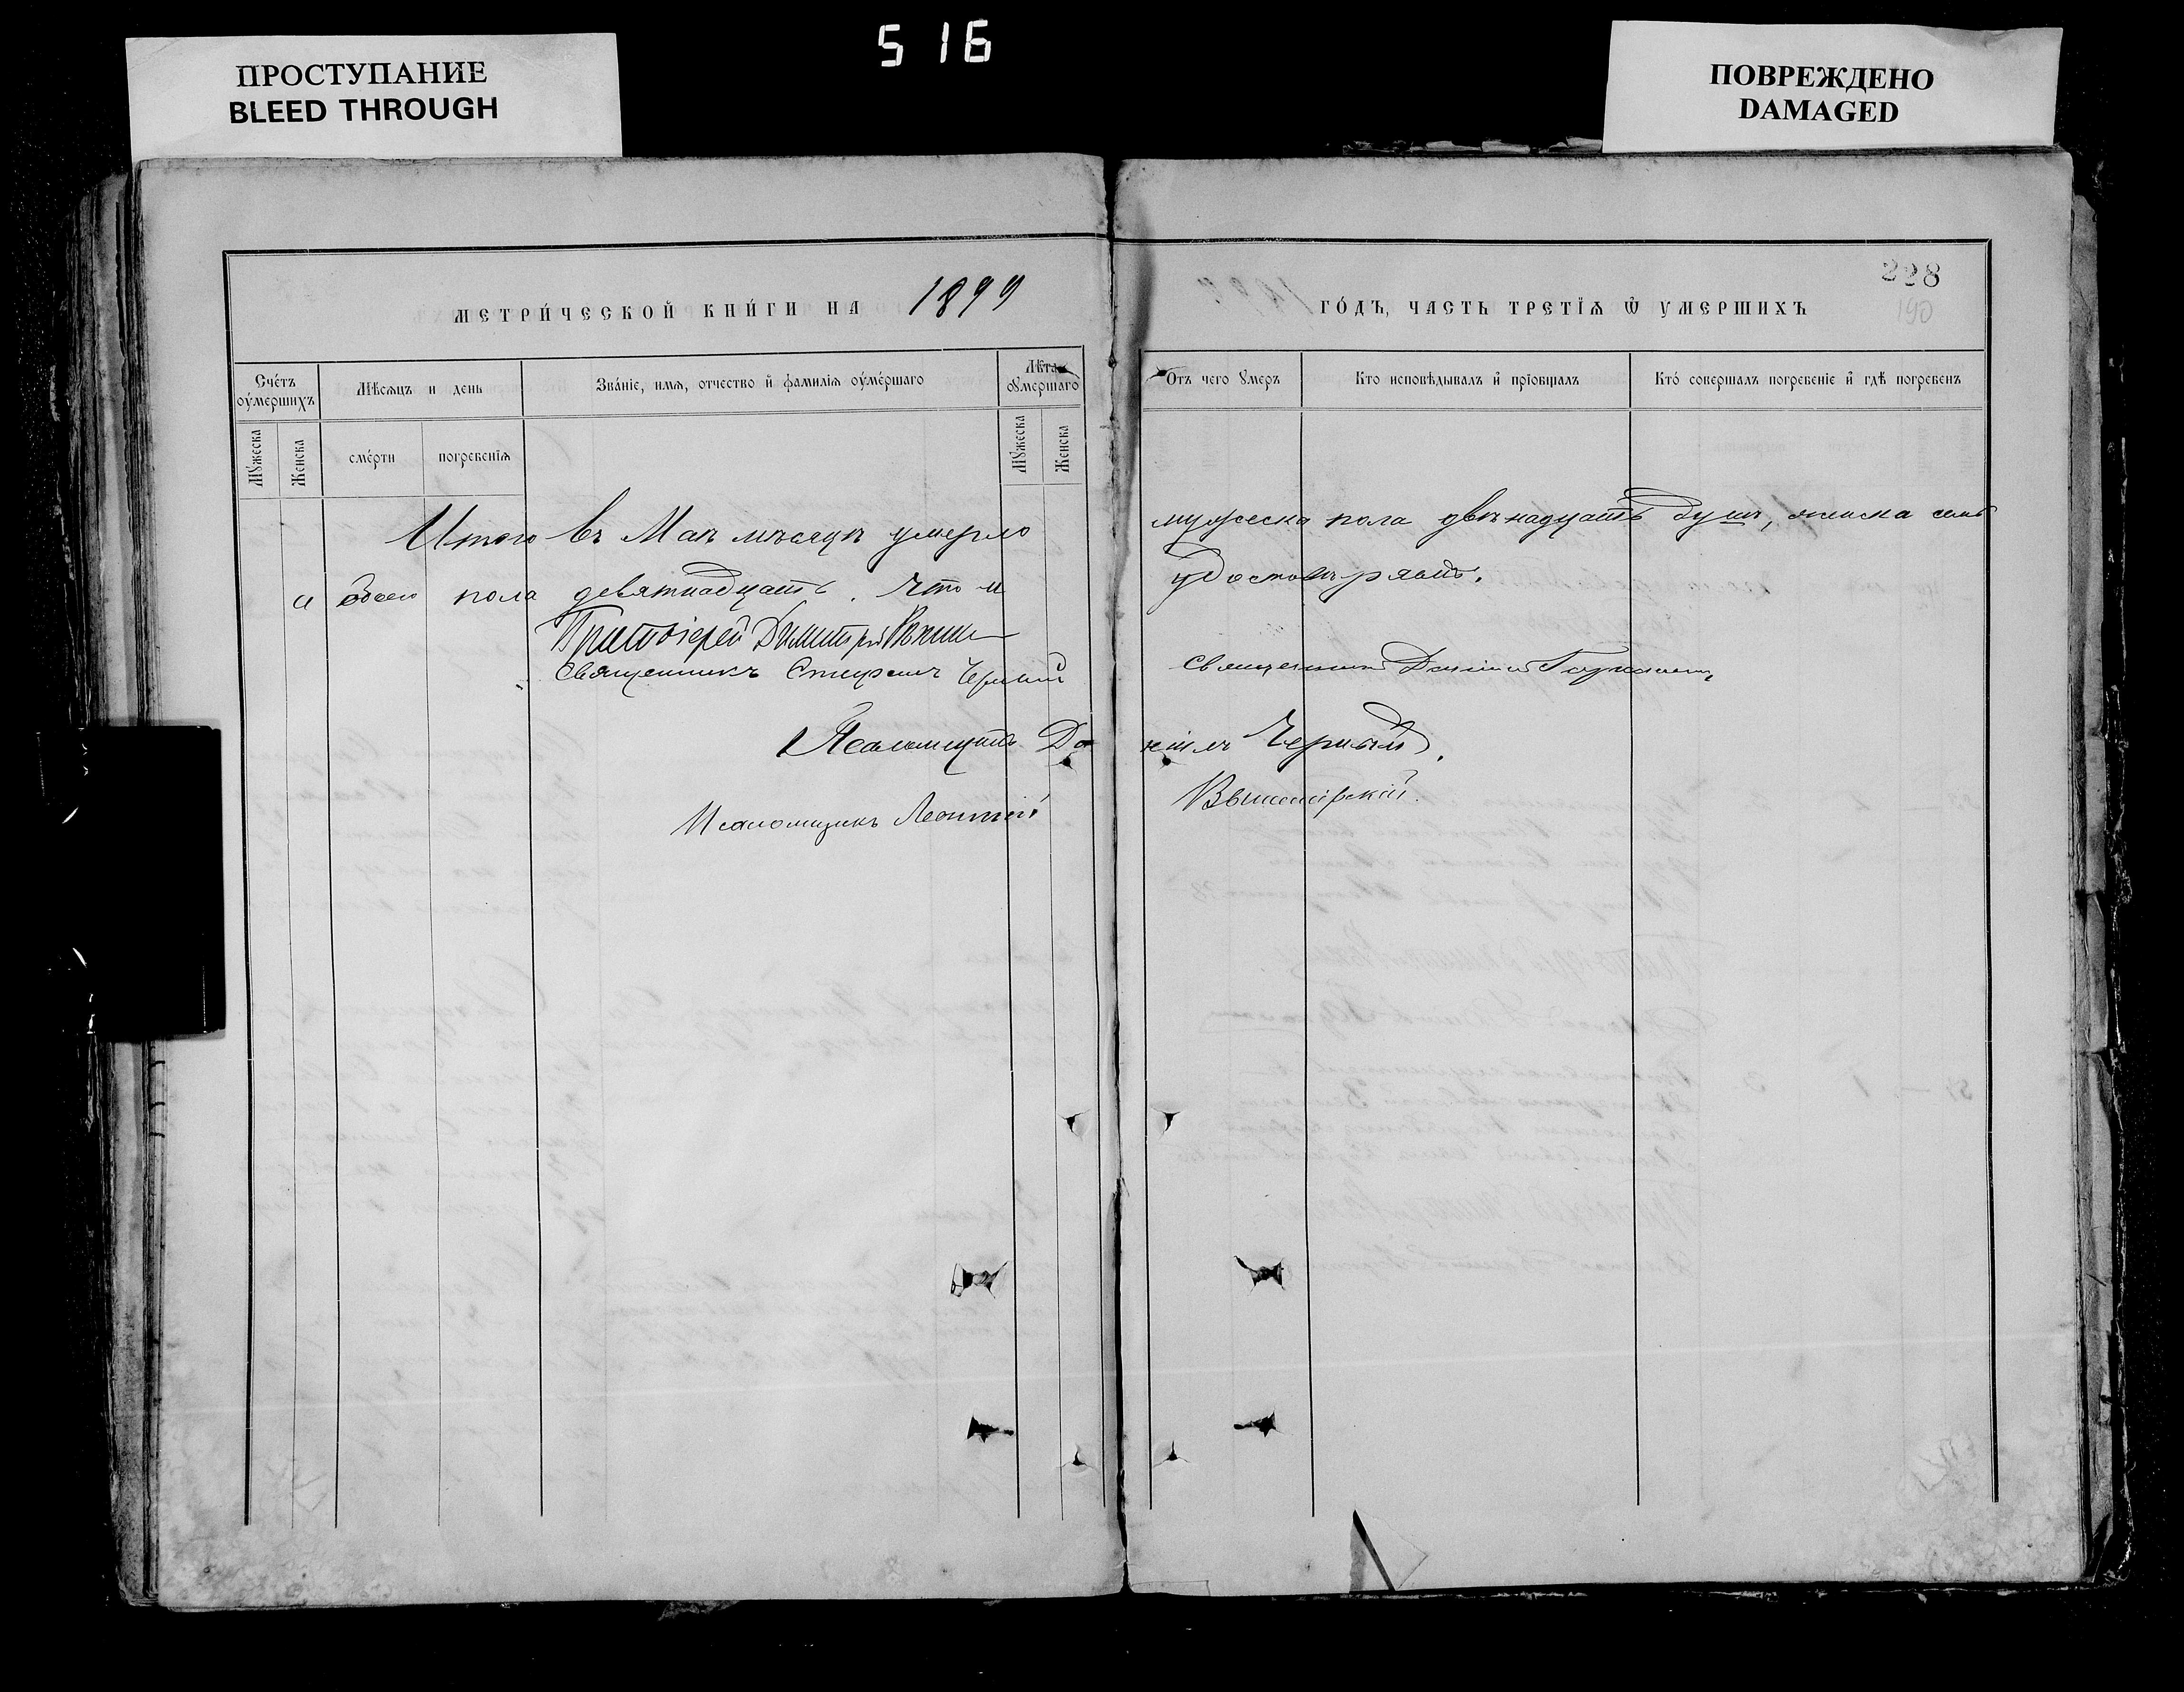 516
ПРОСТУПАНИЕ
BLEED THROUGH
ПОВРЕЖДЕНО
DAMAGED
228
190
МЕТРИ́ЧЕСКОЙ КНИ́ГИ НА 1899
ГО́ДЪ, ЧАСТЬ ТРЕТІѦ Ѿ УМЕРШИХЪ
Сче́тъ оу҆ме́ршихъ
Мѣсѧцъ и день
Зва́нїе, имѧ, отчество и҆ фамилїѧ оу҆ме́ршаго
Лѣта оумершаго
Отъ чего ꙋмеръ
Кто исповѣдывалъ и҆ прїобщалъ
Кто́ совершалъ погребенїе и҆ гдѣ погребенъ
Мꙋжеска
Женска
сме́рти
погребенїѧ
Мꙋжеска
Женска
Итого въ Маѣ мѣсяцѣ умерло мужеска пола двѣнадцать душъ, женска семь
а обоего пола девятнадцать. Что и удостовѣряютъ.
Протоіерей Димитрій
Священникъ Стефанъ Черный
Священникъ
Псаломщикъ Даніилъ Черный.
Псаломщикъ Леонтій